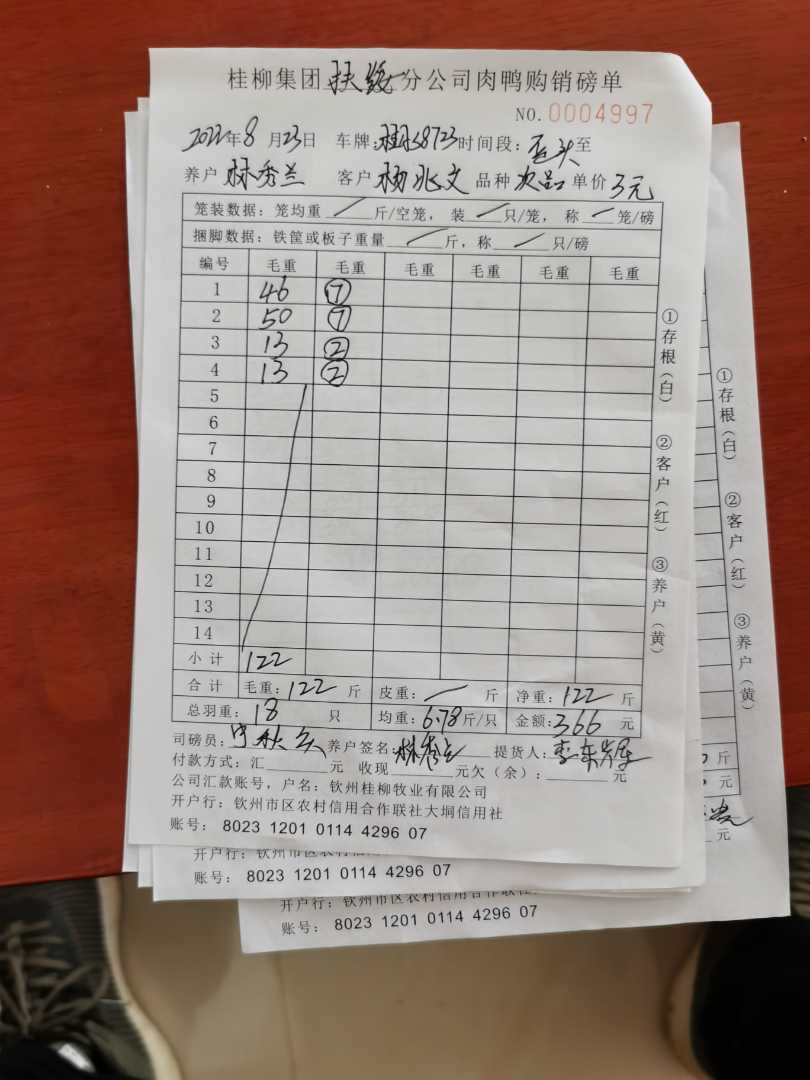 桂柳集团扶绥分公司肉鸭购销磅单
NO.0004997
2022年8月23日 车牌: 时间段: 至
养户 林秀兰 客户 杨兆文 品种 次品 单价 3元
笼装数据:笼均重 / 斤/空笼, 装 / 只/笼, 称 / 笼/磅
捆脚数据:铁筐或板子重量 / 斤,称 / 只/磅
编号 毛重 毛重 毛重 毛重 毛重 毛重
1 46 ⑦
2 50 ⑦
3 13 ②
4 13 ②
5
6
7
8
9
10
11
12
13
14
小计 122
合计 毛重:122 斤 皮重: / 斤 净重:122 斤
总羽重:18 只 均重:6.78斤/只 金额:366 元
司磅员: 养户签名:林秀兰 提货人:
付款方式:汇 元 收现 元欠(余): 元
公司汇款账号,户名:钦州桂柳牧业有限公司
开户行:钦州市区农村信用合作联社大垌信用社
账号: 8023 1201 0114 4296 07
①存根(白) ②客户(红) ③养户(黄)
①存根(白) ②客户(红) ③养户(黄)
斤
元
元
开户行:钦州市区农村信
账号: 8023 1201 0114 4296 07
开户行:钦州市区农村信用合作联社
账号: 8023 1201 0114 4296 07